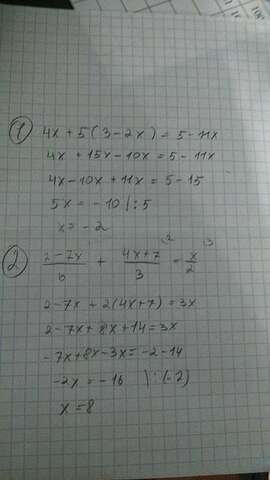 1) 4x + 5(3-2x) = 5-11x
4x + 15x - 10x = 5 - 11x
4x - 10x + 11x = 5 - 15
5x = -10 |:5
x = -2
2) (2-7x)/6 + (4x+7)/3 \2 = x/2 \3
2-7x + 2(4x+7) = 3x
2-7x + 8x + 14 = 3x
-7x + 8x - 3x = -2-14
-2x = -16 \:(-2)
x = 8